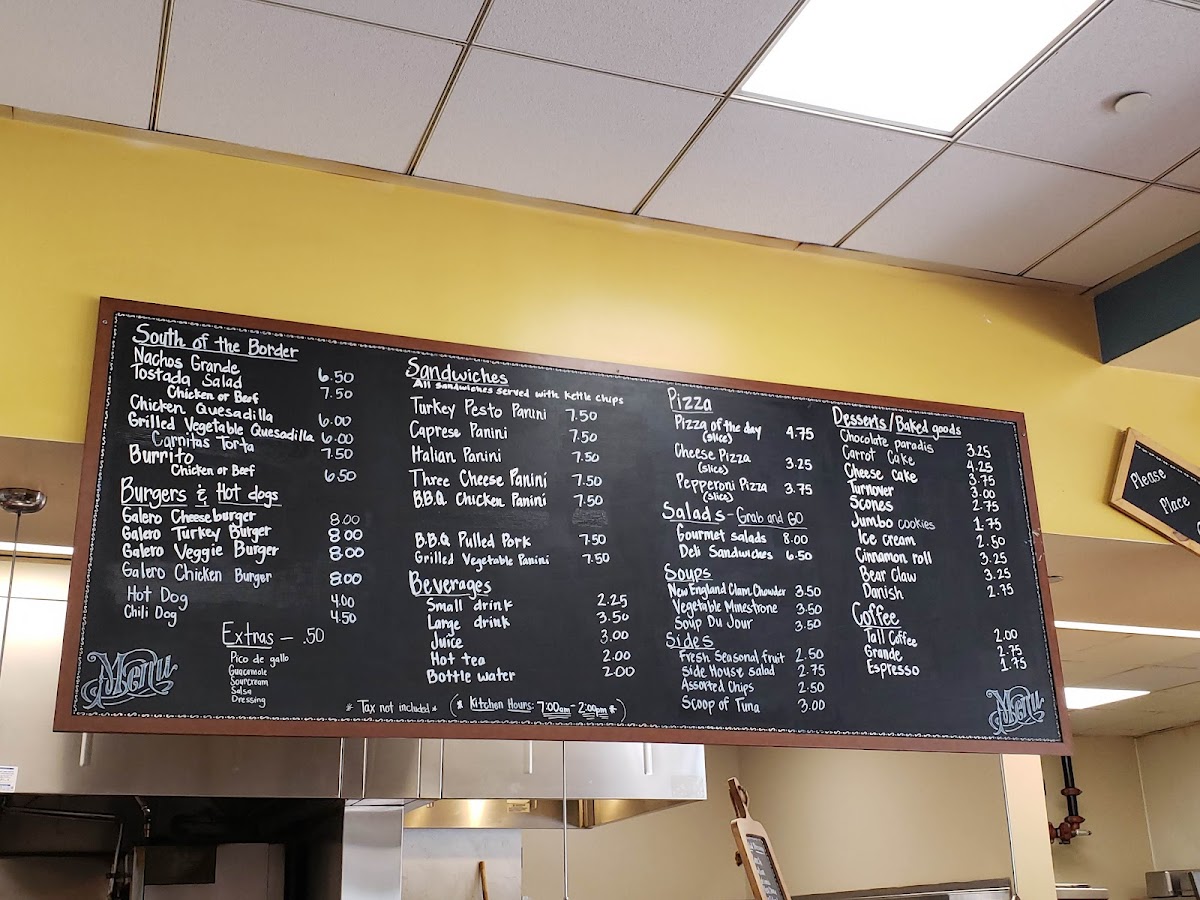 South of the Border
Nachos Grande 6.50
Tostada Salad 7.50
Chicken or Beef
Chicken Quesadilla 6.00
Grilled Vegetable Quesadilla 6.00
Carnitas Torta 7.50
Burrito
Chicken or Beef 6.50
Burgers & Hot dogs
Galero Cheeseburger 8.00
Galero Turkey Burger 8.00
Galero Veggie Burger 8.00
Galero Chicken Burger 8.00
Hot Dog 4.00
Chili Dog 4.50
Extras - .50
Pico de gallo
Guacamole
Sourcream
Salsa
Dressing
Menu
Sandwiches
All sandwiches served with kettle chips
Turkey Pesto Panini 7.50
Caprese Panini 7.50
Italian Panini 7.50
Three Cheese Panini 7.50
B.B.Q. Chicken Panini 7.50
B.B.Q Pulled Pork 7.50
Grilled Vegetable Panini 7.50
Beverages
Small drink 2.25
Large drink 3.50
Juice 3.00
Hot tea 2.00
Bottle water 2.00
* Tax not included * (* Kitchen Hours: 7:00am - 2:00pm *)
Pizza
Pizza of the day 4.75
(slice)
Cheese Pizza 3.25
(slice)
Pepperoni Pizza 3.75
(slice)
Salads - Grab and GO
Gourmet salads 8.00
Deli Sandwiches 6.50
Soups
New England Clam Chowder 3.50
Vegetable Minestrone 3.50
Soup Du Jour 3.50
Sides
Fresh Seasonal fruit 2.50
Side House salad 2.75
Assorted Chips 2.50
Scoop of Tuna 3.00
Desserts/Baked goods
Chocolate paradis 3.25
Carrot Cake 4.25
Cheese cake 3.75
Turnover 3.00
Scones 2.75
Jumbo cookies 1.75
Ice cream 2.50
Cinnamon roll 3.25
Bear Claw 3.25
Danish 2.75
Coffee
Tall Coffee 2.00
Grande 2.75
Espresso 1.75
Menu
Please
Place